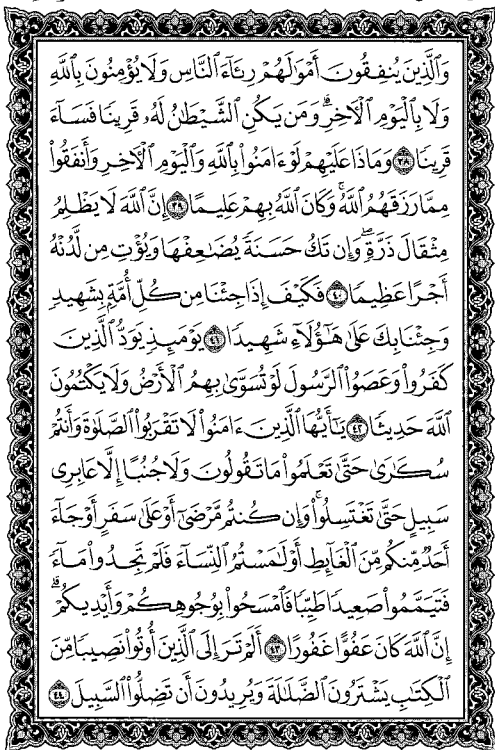 وَٱلَّذِينَ يُنفِقُونَ أَمْوَٰلَهُمْ رِئَآءَ ٱلنَّاسِ وَلَا يُؤْمِنُونَ بِٱللَّهِ
وَلَا بِٱلْيَوْمِ ٱلْأَخِرِۗ وَمَن يَكُنِ ٱلشَّيْطَٰنُ لَهُۥ قَرِينًا فَسَآءَ
قَرِينًا ٣٨ وَمَاذَا عَلَيْهِمْ لَوْ ءَامَنُوا۟ بِٱللَّهِ وَٱلْيَوْمِ ٱلْأَخِرِ وَأَنفَقُوا۟
مِمَّا رَزَقَهُمُ ٱللَّهُۚ وَكَانَ ٱللَّهُ بِهِمْ عَلِيمًا ٣٩ إِنَّ ٱللَّهَ لَا يَظْلِمُ
مِثْقَالَ ذَرَّةٍۖ وَإِن تَكُ حَسَنَةً يُضَٰعِفْهَا وَيُؤْتِ مِن لَّدُنْهُ
أَجْرًا عَظِيمًا ٤٠ فَكَيْفَ إِذَا جِئْنَا مِن كُلِّ أُمَّةٍۭ بِشَهِيدٍ
وَجِئْنَا بِكَ عَلَىٰ هَٰٓؤُلَآءِ شَهِيدًا ٤١ يَوْمَئِذٍ يَوَدُّ ٱلَّذِينَ
كَفَرُوا۟ وَعَصَوُا۟ ٱلرَّسُولَ لَوْ تُسَوَّىٰ بِهِمُ ٱلْأَرْضُ وَلَا يَكْتُمُونَ
ٱللَّهَ حَدِيثًا ٤٢ يَٰٓأَيُّهَا ٱلَّذِينَ ءَامَنُوا۟ لَا تَقْرَبُوا۟ ٱلصَّلَوٰةَ وَأَنتُمْ
سُكَٰرَىٰ حَتَّىٰ تَعْلَمُوا۟ مَا تَقُولُونَ وَلَا جُنُبًا إِلَّا عَابِرِى
سَبِيلٍ حَتَّىٰ تَغْتَسِلُوا۟ۚ وَإِن كُنتُم مَّرْضَىٰٓ أَوْ عَلَىٰ سَفَرٍ أَوْ جَآءَ
أَحَدٌ مِّنكُم مِّنَ ٱلْغَآئِطِ أَوْ لَٰمَسْتُمُ ٱلنِّسَآءَ فَلَمْ تَجِدُوا۟ مَآءً
فَتَيَمَّمُوا۟ صَعِيدًا طَيِّبًا فَٱمْسَحُوا۟ بِوُجُوهِكُمْ وَأَيْدِيكُمْۗ
إِنَّ ٱللَّهَ كَانَ عَفُوًّا غَفُورًا ٤٣ أَلَمْ تَرَ إِلَى ٱلَّذِينَ أُوتُوا۟ نَصِيبًا مِّنَ
ٱلْكِتَٰبِ يَشْتَرُونَ ٱلضَّلَٰلَةَ وَيُرِيدُونَ أَن تَضِلُّوا۟ ٱلسَّبِيلَ ٤٤